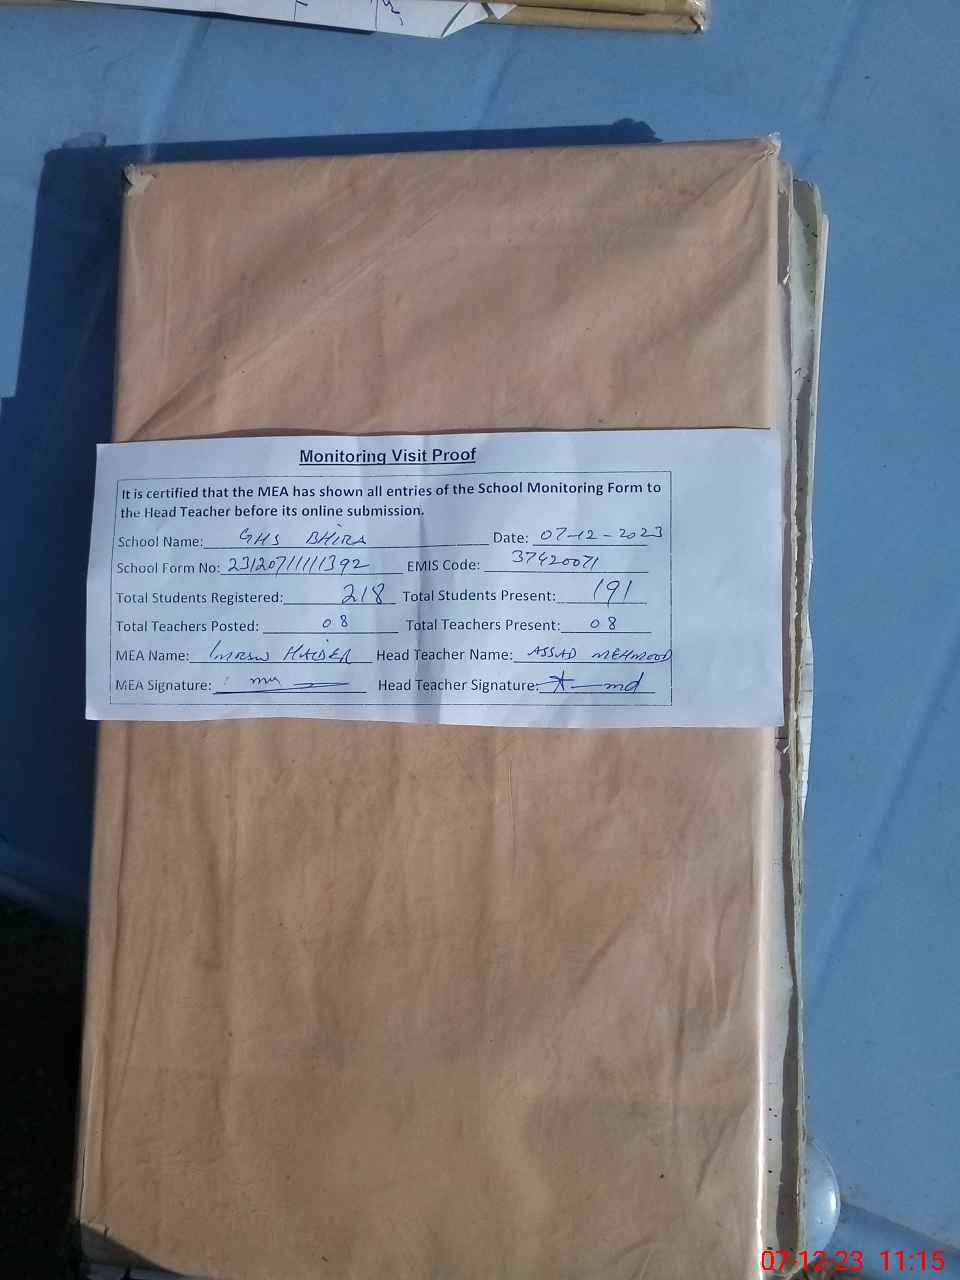 Monitoring Visit Proof
It is certified that the MEA has shown all entries of the School Monitoring Form to
the Head Teacher before its online submission.
School Name: GHS BHIRA Date: 07-12-2023
School Form No: 231207111111392 EMIS Code: 37420071
Total Students Registered: 218 Total Students Present: 191
Total Teachers Posted: 08 Total Teachers Present: 08
MEA Name: IMRAN HAIDER Head Teacher Name: ASSAD MEHMOOD
MEA Signature: Head Teacher Signature:
07-12-23 11:15